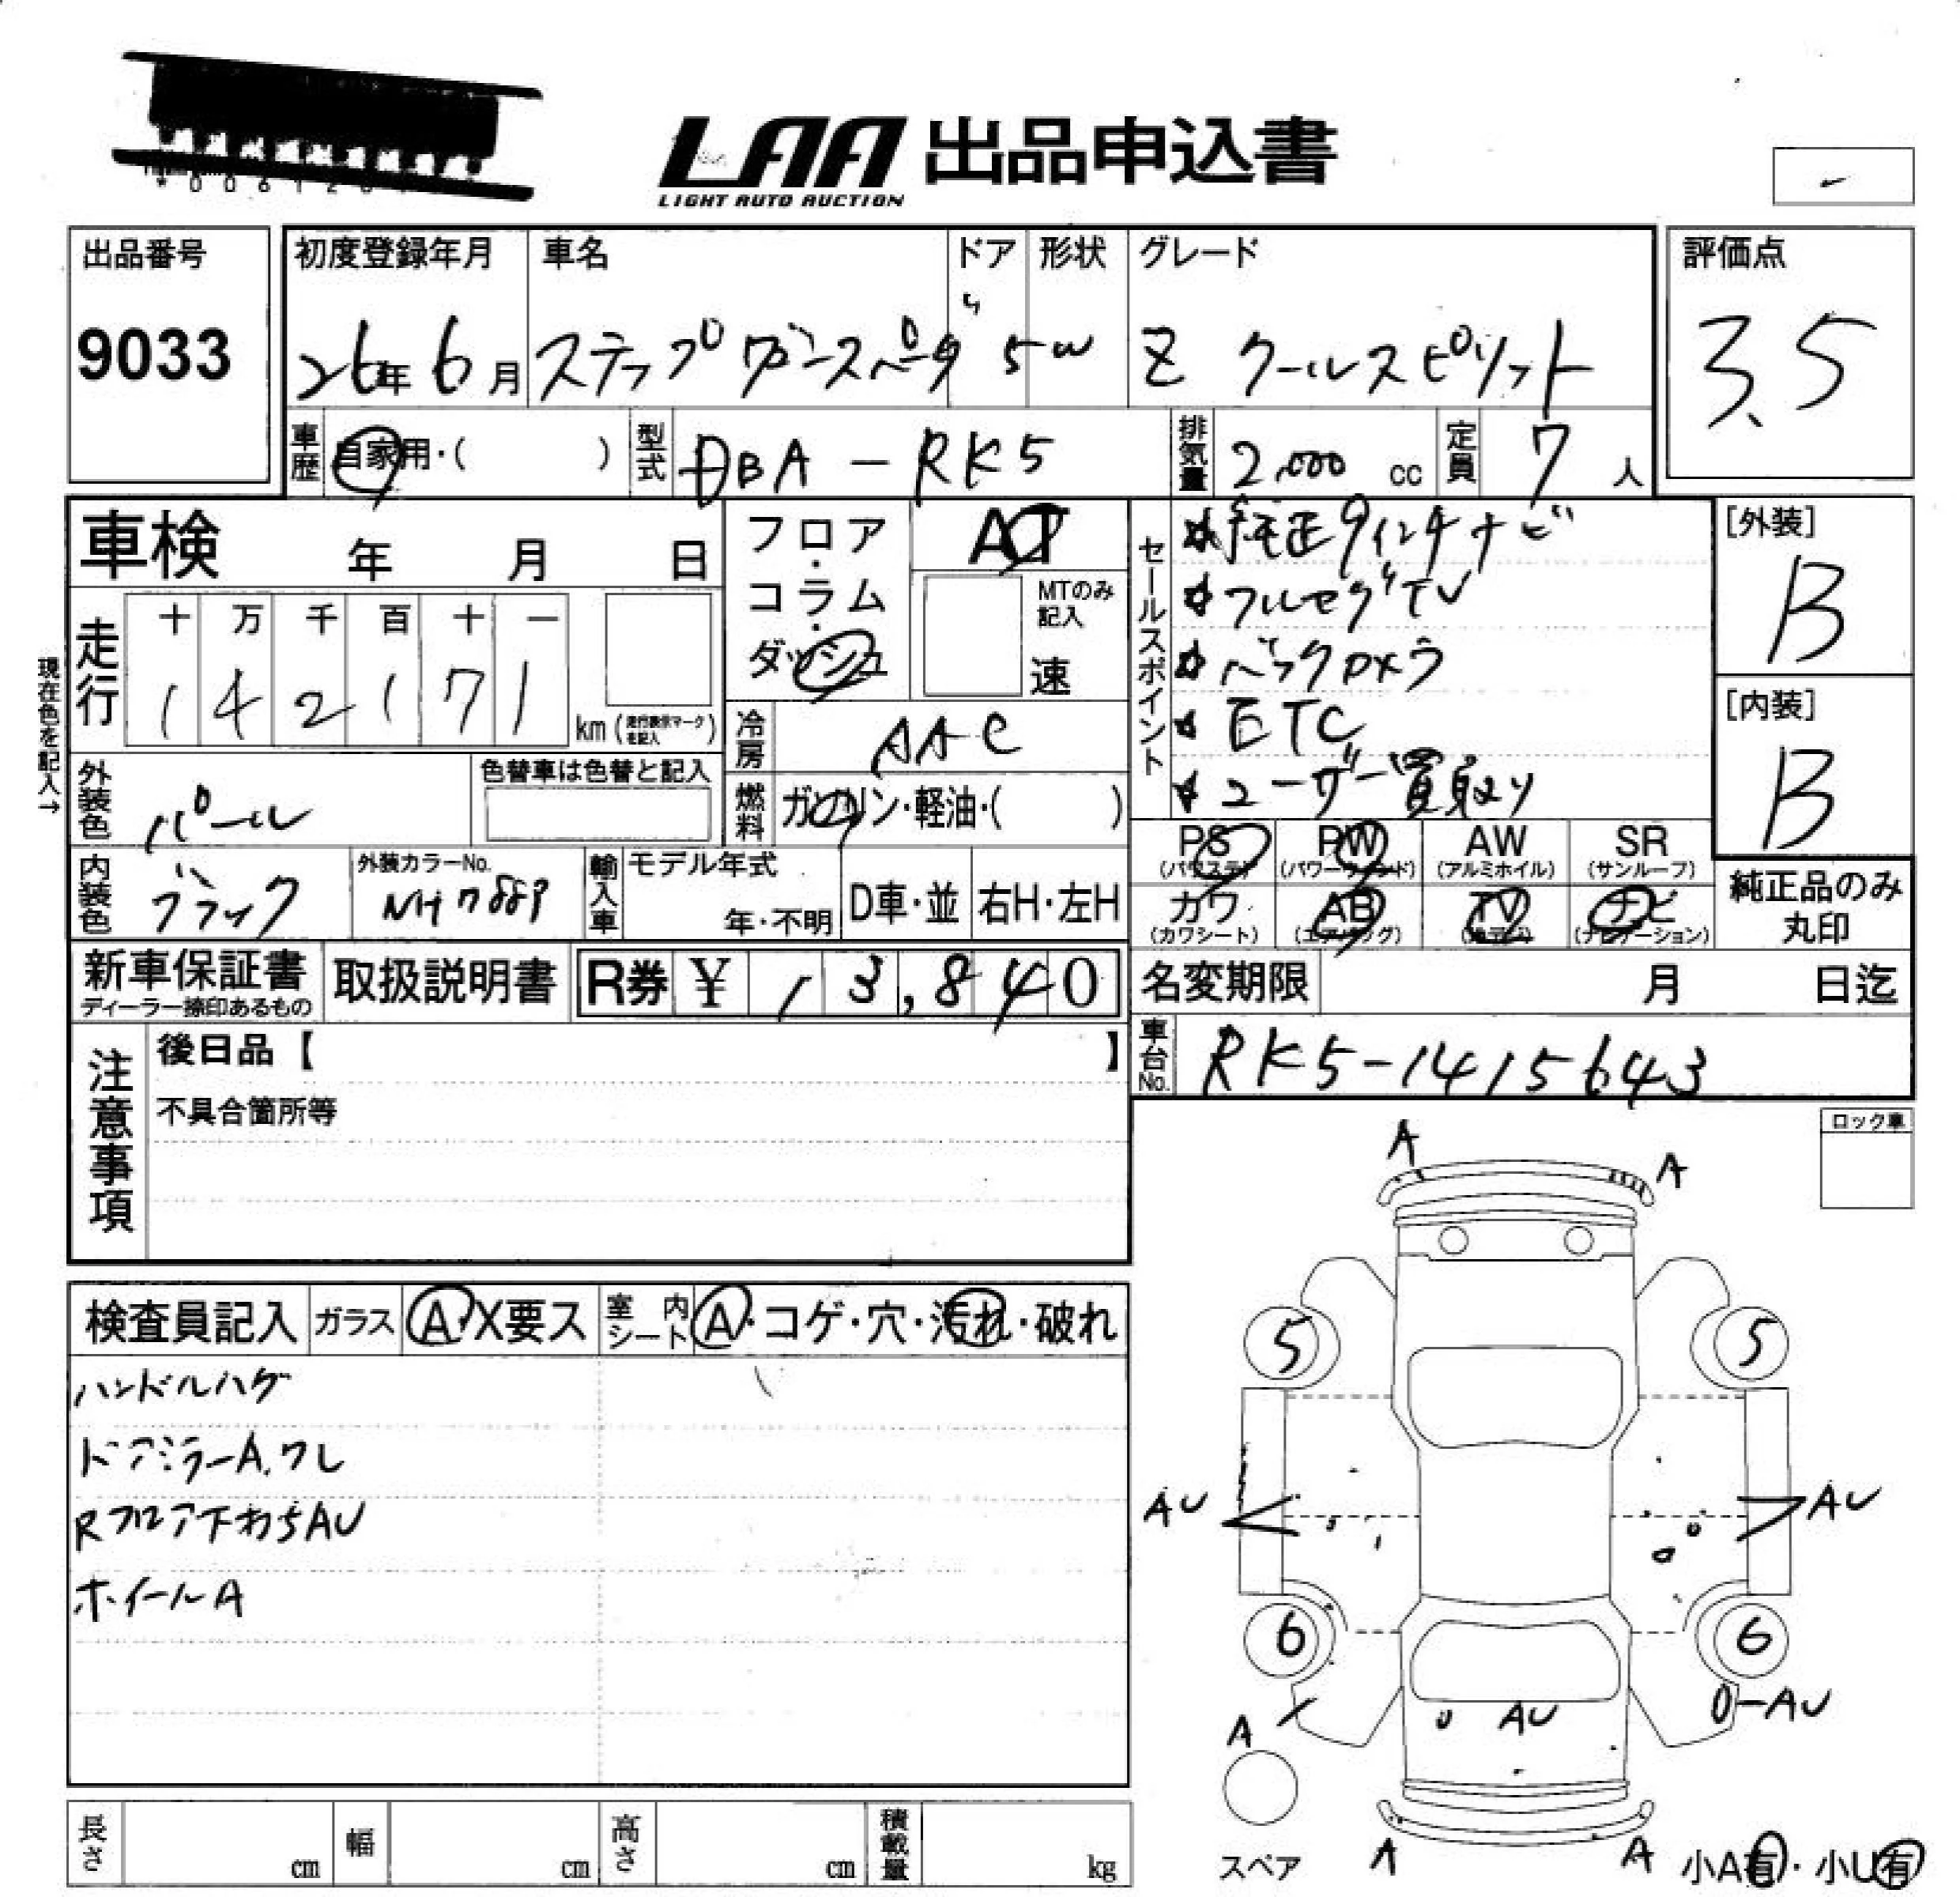 LAA 出品申込書
LIGHT AUTO AUCTION
出品番号
9033
初度登録年月
26年 6月
車名
ステップワゴンスパーダ
ドア
5
形状
W
グレード
Z クールスピリット
評価点
3.5
車歴
自家用・( )
型式
DBA-RK5
排気量
2,000 cc
定員
7 人
車検 年 月 日
フロア・コラム・ダッシュ
AT
MTのみ記入
速
セールスポイント
純正9インチナビ
フルセグTV
バックカメラ
ETC
ユーザー買取り
[外装]
B
[内装]
B
現在色を記入→
走行
十 万 千 百 十 一
1 4 2 1 7 1
km (走行表示マークを記入)
冷房
AAC
外装色
パール
色替車は色替と記入
燃料
ガソリン・軽油・( )
PS (パワステ)
PW (パワーウィンド)
AW (アルミホイル)
SR (サンルーフ)
カワ (カワシート)
AB (エアバッグ)
TV (カラテレビ)
ナビ (ナビゲーション)
純正品のみ丸印
内装色
ブラック
外装カラーNo.
NH788P
輸入車
モデル年式
年・不明
D車・並
右H・左H
新車保証書
ディーラー捺印あるもの
取扱説明書
R券 ¥ 13,840
名変期限 月 日迄
車台No.
RK5-1415643
注意事項
後日品【 】
不具合箇所等
ロック車
検査員記入
ガラス
A・X要ス
室内シート
A・コゲ・穴・汚れ・破れ
ハンドルハゲ
ドアミラーA.ワレ
Rフロア下わずAU
ホイールA
A
A
5
5
AU
AU
6
6
A
U AU
U-AU
スペア
A
A
小A有・小U有
長さ cm
幅 cm
高さ cm
積載量 kg